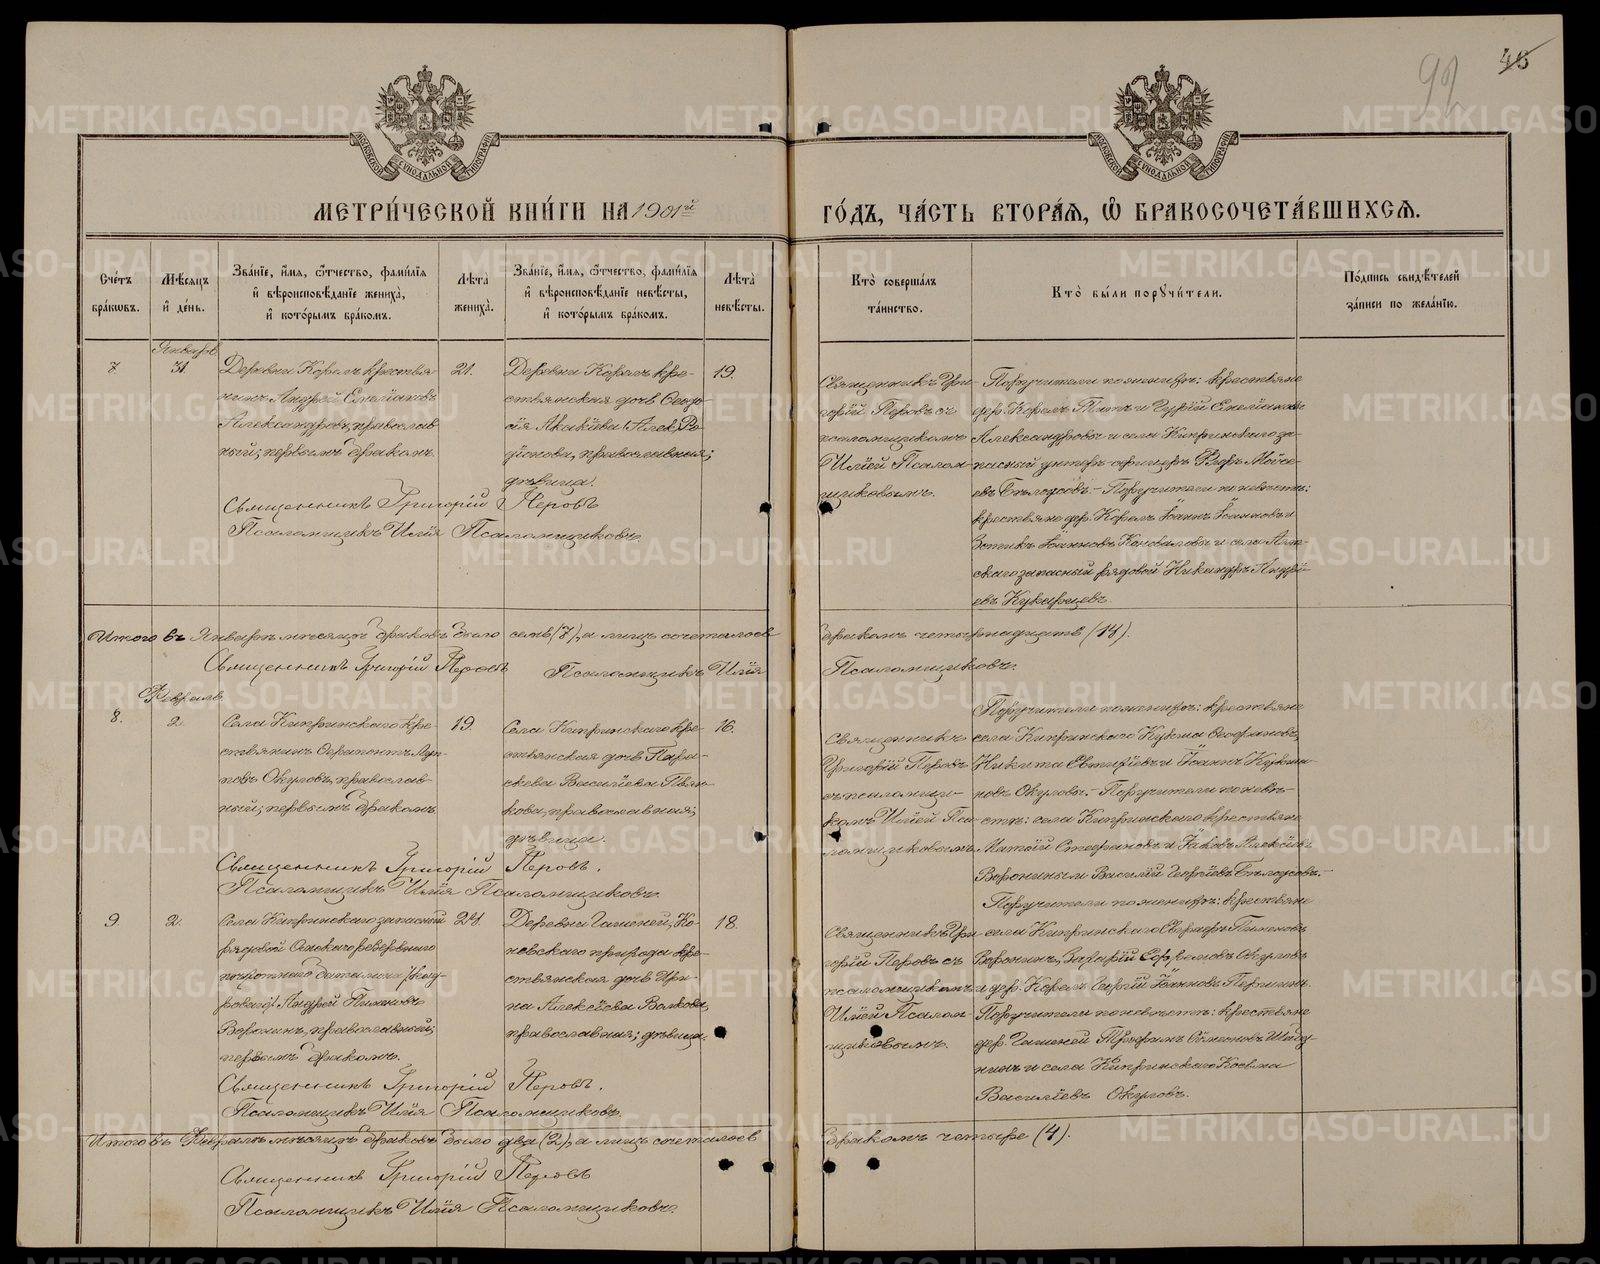 92
46
МОСКОВСКОЙ СѴНОДАЛЬНОЙ ТИПОГРАФІИ
МОСКОВСКОЙ СѴНОДАЛЬНОЙ ТИПОГРАФІИ
МЕТРИ́ЧЕСКОЙ КНИ́ГИ НА 1901й ГО́ДЪ, ЧА́СТЬ ВТОРА́Я, Ѽ БРАКОСОЧЕТА́ВШИХСЯ.
Сче́тъ бра́ковъ.
Мѣ́сяцъ и҆ де́нь.
Зва́нїе, и҆́мя, ѻ҆́тчество, фами́лїя
и҆ вѣроисповѣ́данїе жениха̀,
и҆ кото́рымъ бра́комъ.
Лѣ́та жениха̀.
Зва́нїе, и҆́мя, ѻ҆́тчество, фами́лїя
и҆ вѣроисповѣ́данїе невѣ́сты,
и҆ кото́рымъ бра́комъ.
Лѣ́та невѣ́сты.
Кто̀ соверша́лъ та́инство.
Кто̀ бы́ли поручи́тели.
По́дпись свидѣ́телей за́писи по жела́нїю.
7.
Январь
31.
Деревни Корелъ крестья-
нинъ Андрей Емеліановъ
Александровъ, православ-
ный; первымъ бракомъ.
21.
Деревни Корелъ кре-
стьянская дочь Ѳеодо-
сія Акакіева
Родіонова, православная;
дѣвица.
19.
Священникъ Гри-
горій Перовъ съ
псаломщикомъ
Иліей Псалом-
щиковымъ.
Поручители по женихѣ: крестьяне
дер. Корелъ Титъ и Гурій Емеліановы
Александровы и села Кипринскаго за-
пасный унтеръ-офицеръ Ѳедоръ Мойсе-
евъ Бѣлоусовъ. - Поручители по невѣстѣ:
крестьяне дер. Корелъ Іоаннъ Іоанновъ и
Іоанновъ Коноваловы и села
запасный рядовой Никандръ Андре-
евъ Кукарцевъ.
Священникъ Григорій Перовъ
Псаломщикъ Илія Псаломщиковъ.
Итого въ Январѣ мѣсяцѣ браковъ было семь (7), а лицъ сочеталось бракомъ четырнадцать (14).
Священникъ Григорій Перовъ Псаломщикъ Илія Псаломщиковъ.
8.
Февраль
2.
Села Кипринскаго кре-
стьянинъ Ѳерапонтъ Луп-
повъ Окуловъ, православ-
ный; первымъ бракомъ.
19.
Села Кипринскаго кре-
стьянская дочь Пара-
скева Васіліева Пьян-
кова, православная;
дѣвица.
16.
Священникъ
Григорій Перовъ
съ псаломщи-
комъ Иліей Пса-
ломщиковымъ.
Поручители по женихѣ: крестьяне
села Кипринскаго Кузьма Ѳеофановъ,
Никита Евтихіевъ и Іоаннъ Кузьми-
новъ Окуловы. - Поручители по невѣ-
стѣ: села Кипринскаго крестьяне
Матѳій Стефановъ и Іаковъ Алексіевъ
Воронины и Василій Георгіевъ Бѣлоусовъ.
Священникъ Григорій Перовъ.
Псаломщикъ Илія Псаломщиковъ.
9.
2.
Села Кипринскаго запасный
рядовой Омскаго резервнаго
пѣхотнаго баталіона
Андрей Пименовъ
Воронинъ, православный;
первымъ бракомъ.
24.
Деревни Гашеней, Ко-
невскаго прихода кре-
стьянская дочь Ири-
на Алексіева Волкова,
православная; дѣвица.
18.
Священникъ Гри-
горій Перовъ съ
псаломщикомъ
Иліей Псалом-
щиковымъ.
Поручители по женихѣ: крестьяне
села Кипринскаго Евграфъ Пименовъ
Воронинъ, Захарій Ефремовъ Окуловъ
и дер. Корелъ Георгій Іоанновъ Першинъ.
Поручители по невѣстѣ: крестьяне
дер. Гашеней Трофимъ Симеоновъ
и села Кипринскаго Косьма
Василіевъ Окуловъ.
Священникъ Григорій Перовъ.
Псаломщикъ Илія Псаломщиковъ.
Итого въ Февралѣ мѣсяцѣ браковъ было два (2), а лицъ сочеталось бракомъ четыре (4).
Священникъ Григорій Перовъ
Псаломщикъ Илія Псаломщиковъ.
METRIKI.GASO-URAL.RU